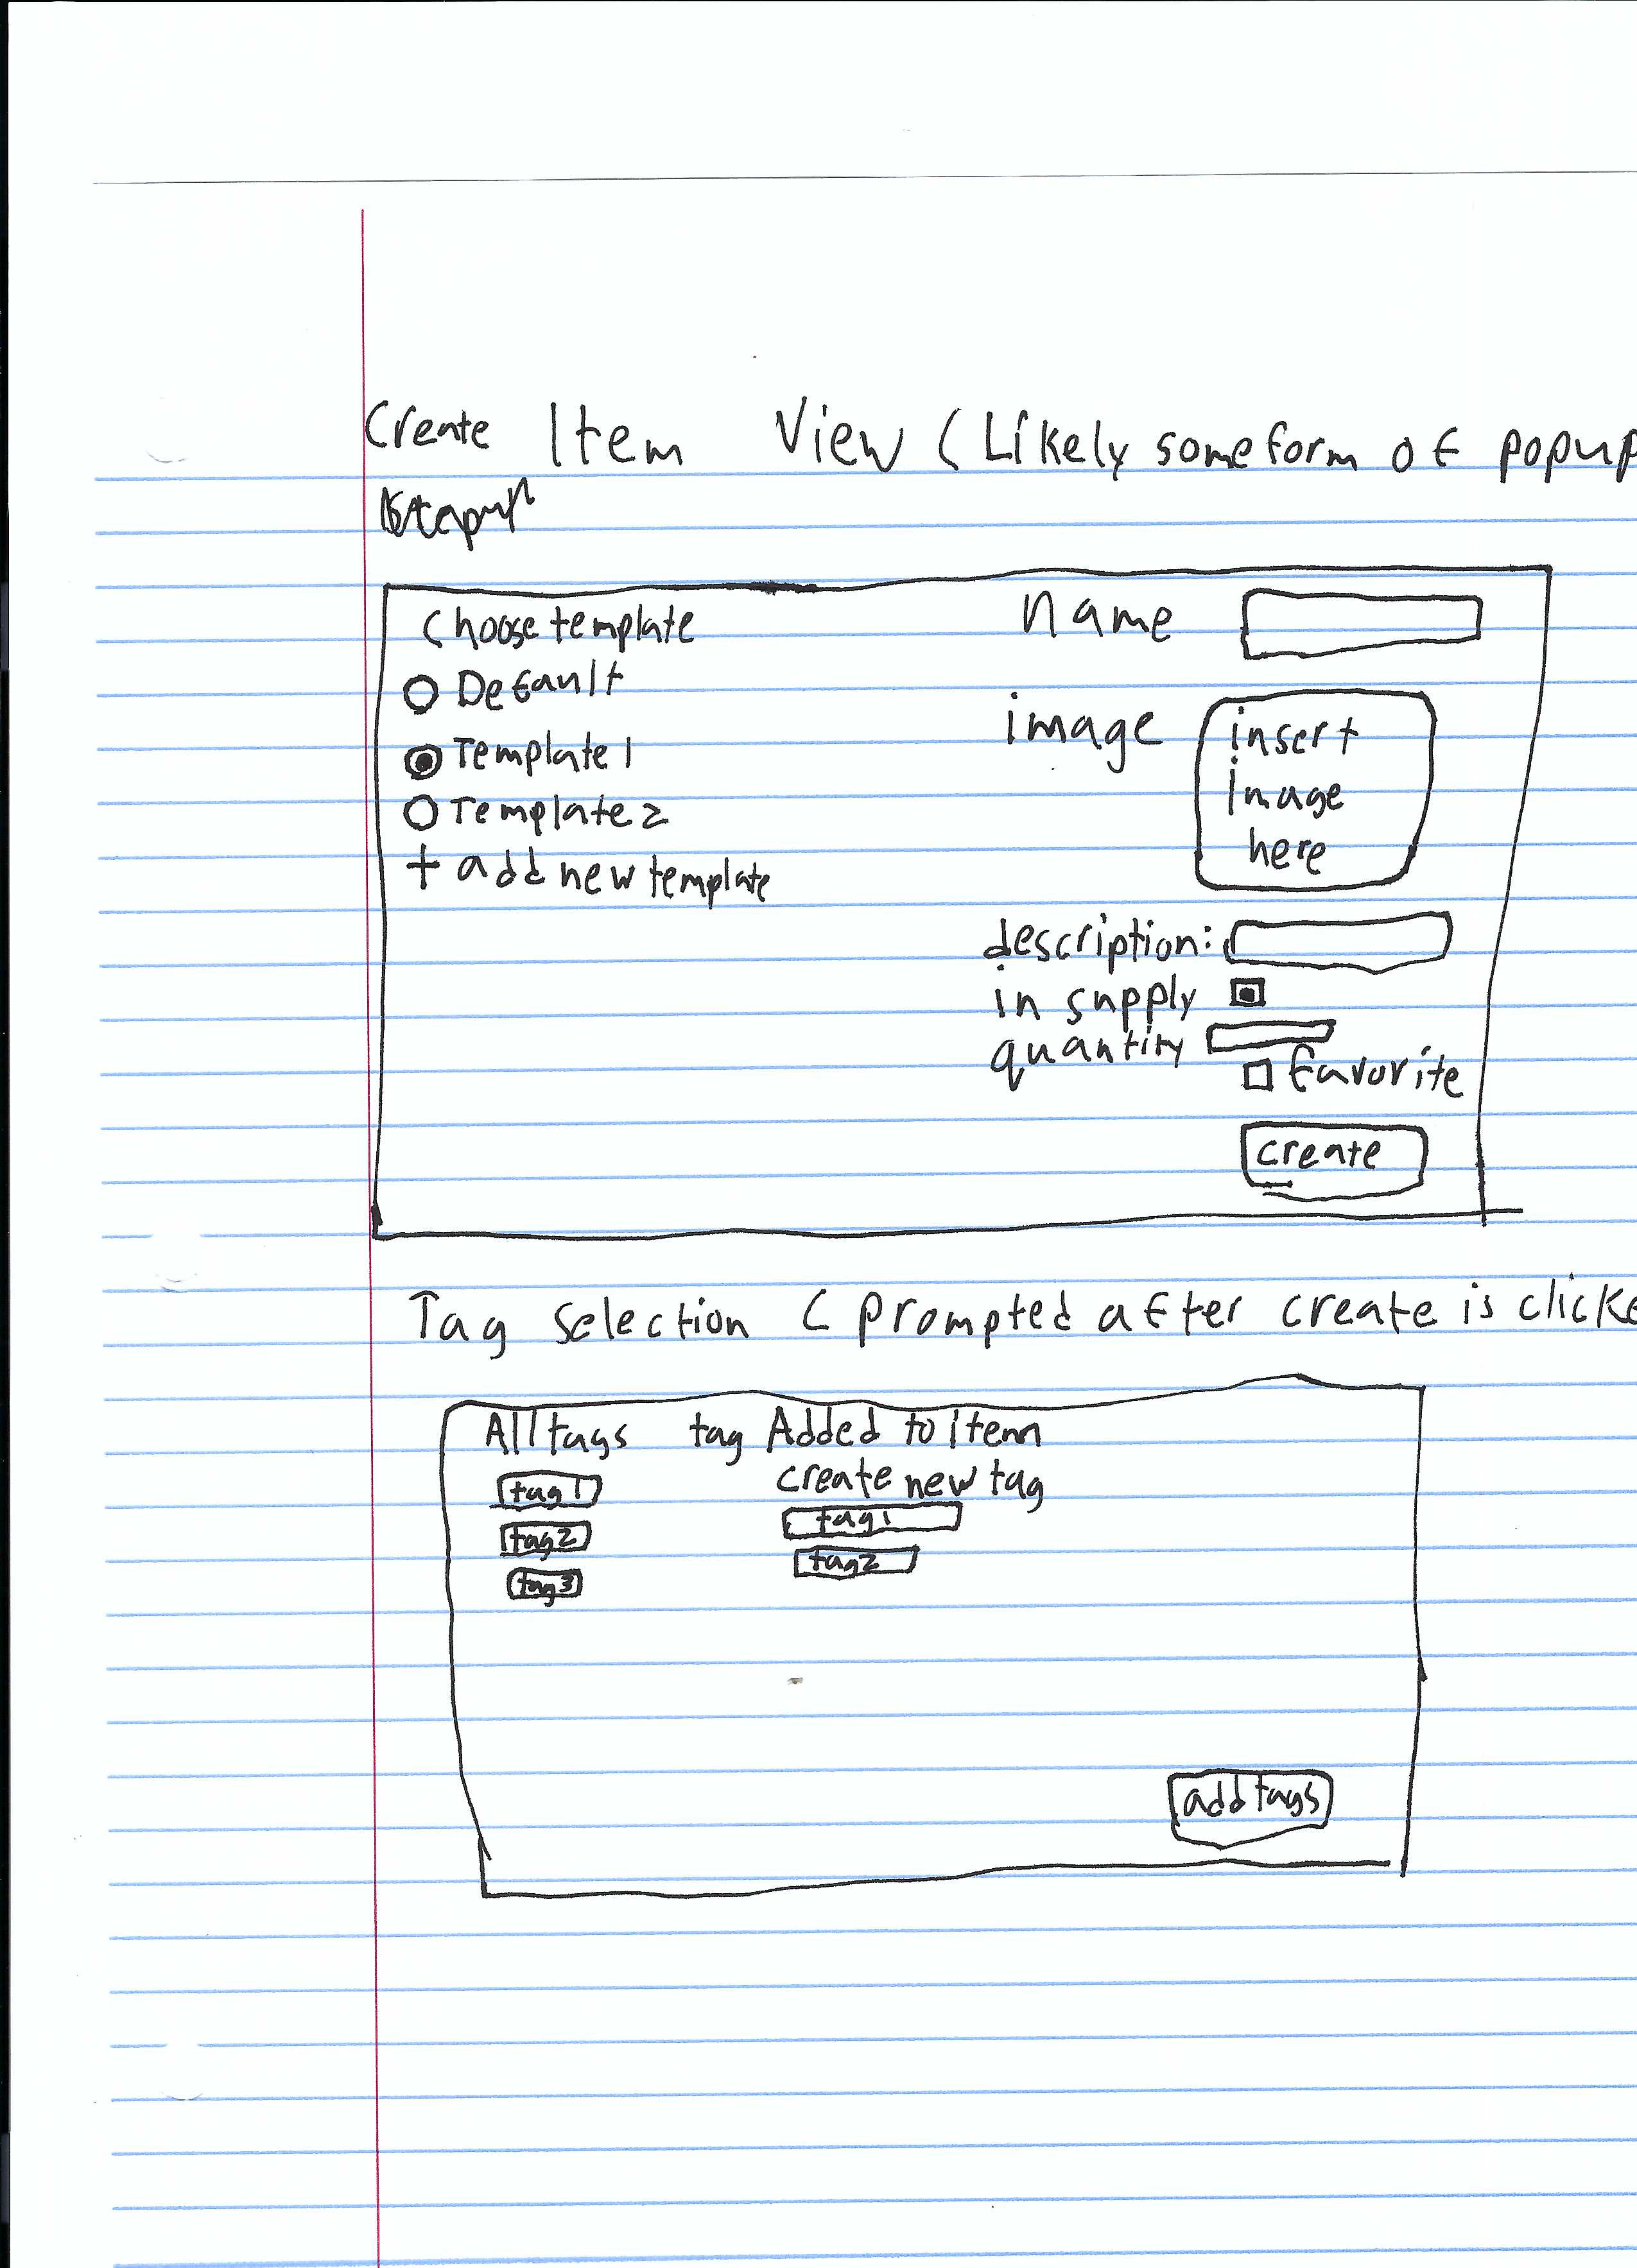 Create Item View (Likely some form of popup
Choose template
Default
Template 1
Template 2
+ add new template
name
image
insert
image
here
description:
in supply
quantity
favorite
create
Tag selection (prompted after create is clicke
All tags
tag1
tag2
tag3
tag Added to item
create new tag
tag1
tag2
add tags